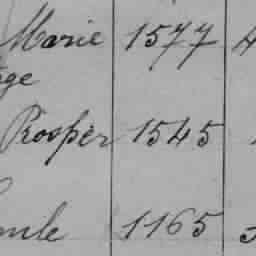 Marie 1577
Prosper 1545
1165